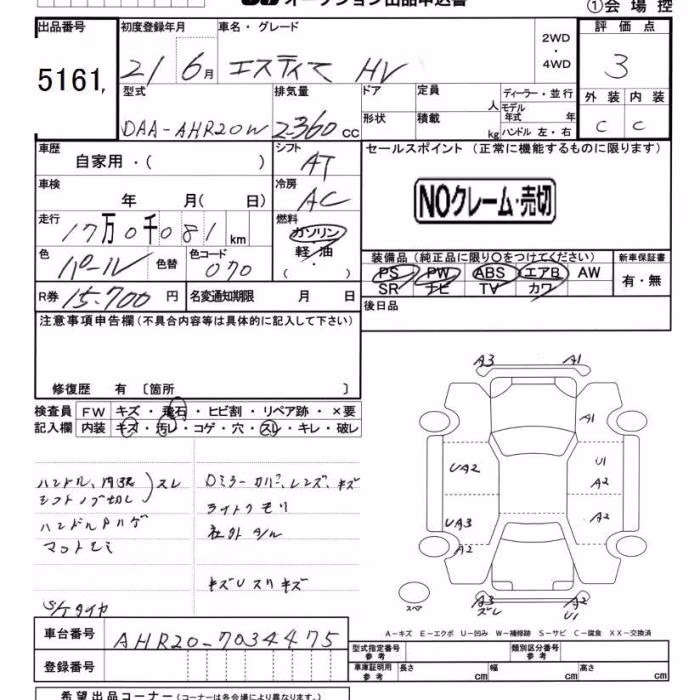 オークション出品申込書
①会場控
出品番号 初度登録年月 車名・グレード 2WD ・ 4WD 評価点
5161, 21 6月 エスティマ HV 3
型式 排気量 ドア 定員 人 ディーラー・並行 外装 内装
DAA-AHR20W 2360cc 形状 積載 kg モデル年式 年 ハンドル 左・右 C C
車歴 自家用・( ) シフト AT セールスポイント (正常に機能するものに限ります)
車検 年 月( 日) 冷房 AC
NOクレーム・売切
走行 17万0千081km 燃料 ガソリン 軽油 ・ ( )
色 パール 色替 色コード 070
装備品 (純正品に限り〇をつけてください) 新車保証書
PS PW ABS エアB AW 有・無
SR ナビ TV カワ
R券 15.700円 名変通知期限 月 日 後日品
注意事項申告欄 (不具合内容等は具体的に記入して下さい)
修復歴 有 〔箇所 〕
検査員 FW キズ・飛石・ヒビ割・リペア跡・×要
記入欄 内装 キズ・汚レ・コゲ・穴・スレ・キレ・破レ
A3 A1
A1
UA2 U1
A2
UA3 A2
A2
A3 ズレ A2
U1
スペア
ハンドル、内張 シフトノブ切レ )スレ
ハンドルハゲ
マット
S/Tタイヤ
Dミラーカバー、レンズ、キズ
ライトクモリ
社外アル
キズUスリキズ
A-キズ E-エクボ U-凹み W-補修跡 S-サビ C-腐食 XX-交換済
車台番号 AHR20-7034475
型式指定番号 参考 類別区分番号 参考
登録番号
車庫証明用 参考 長さ cm 幅 cm 高さ cm
希望出品コーナー (コーナーは各会場により異なります。)